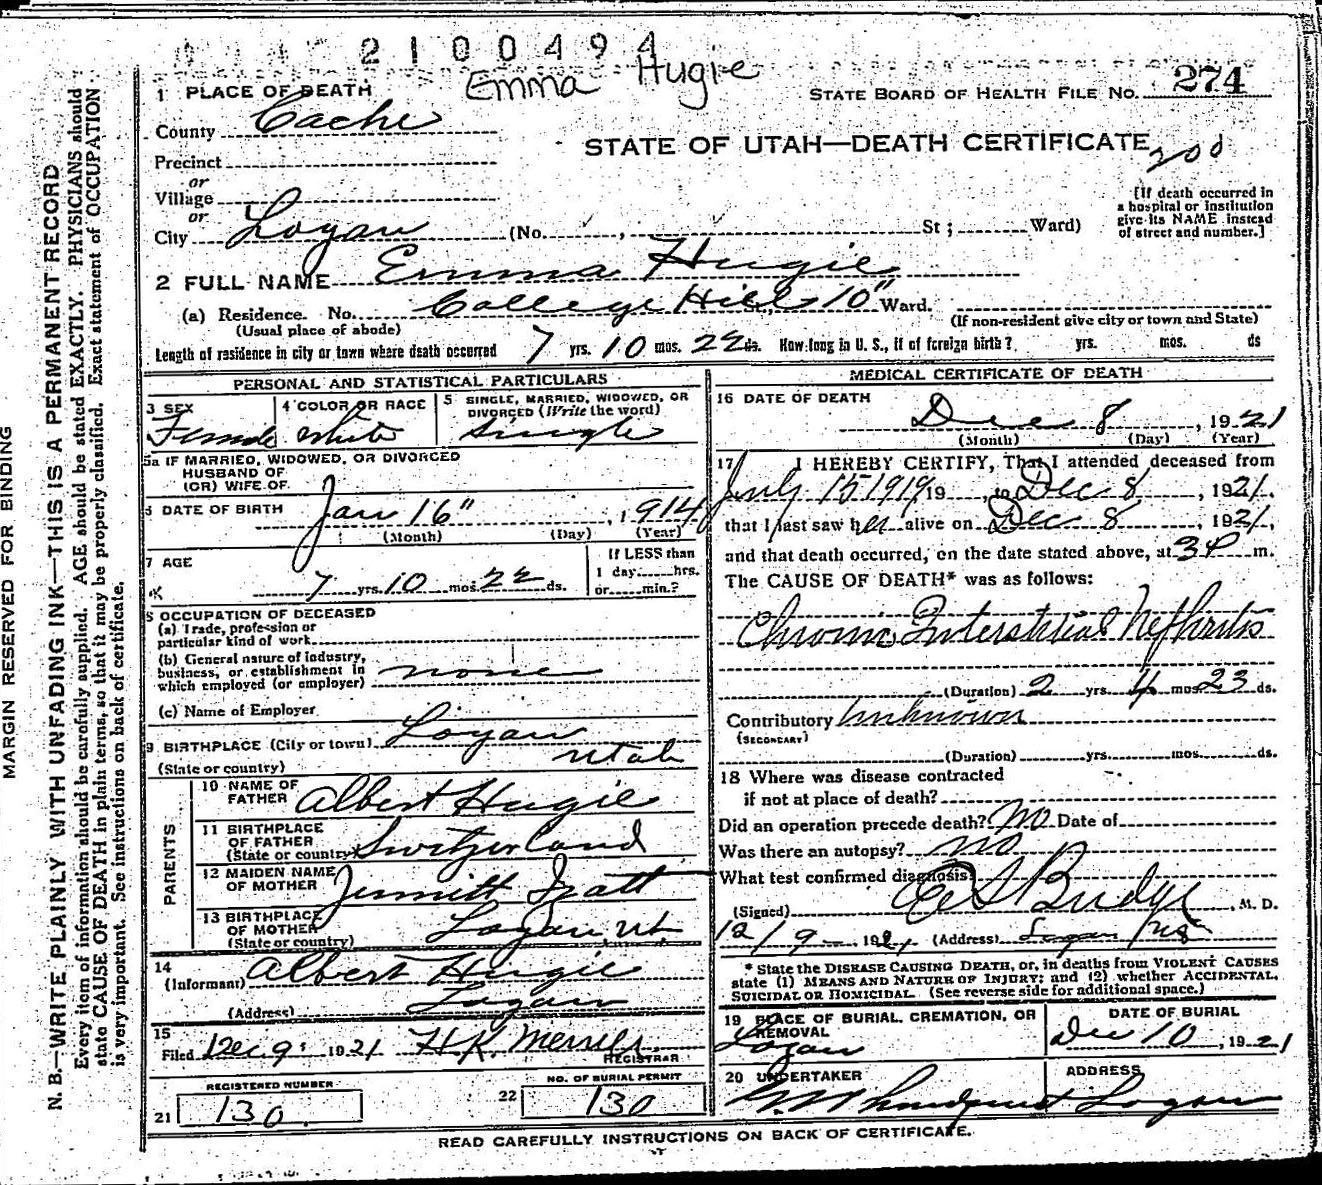 2100494
Emma Hugie
1 PLACE OF DEATH
STATE BOARD OF HEALTH FILE NO. 274
County Cache
STATE OF UTAH—DEATH CERTIFICATE
200
Precinct
or
Village
or
City Logan (No. , St ; Ward)
[If death occurred in
a hospital or institution
give its NAME instead
of street and number.]
2 FULL NAME Emma Hugie
(a) Residence. No. College Hill St., 10" Ward.
(Usual place of abode)
(If non-resident give city or town and State)
Length of residence in city or town where death occurred 7 yrs. 10 mos. 22 ds. How long in U. S., if of foreign birth? yrs. mos. ds
PERSONAL AND STATISTICAL PARTICULARS
3 SEX
Female
4 COLOR OR RACE
White
5 SINGLE, MARRIED, WIDOWED, OR
DIVORCED (Write the word)
Single
5a IF MARRIED, WIDOWED, OR DIVORCED
HUSBAND OF
(OR) WIFE OF
6 DATE OF BIRTH Jan 16" , 1914
(Month) (Day) (Year)
7 AGE
7 yrs. 10 mos. 22 ds.
If LESS than
1 day hrs.
or min.?
8 OCCUPATION OF DECEASED
(a) Trade, profession or
particular kind of work
(b) General nature of industry,
business, or establishment in
which employed (or employer) none
(c) Name of Employer
9 BIRTHPLACE (City or town) Logan
(State or country) Utah
PARENTS
10 NAME OF
FATHER Albert Hugie
11 BIRTHPLACE
OF FATHER
(State or country) Switzerland
12 MAIDEN NAME
OF MOTHER
13 BIRTHPLACE
OF MOTHER
(State or country) Logan, Ut.
14
(Informant) Albert Hugie
(Address) Logan
15
Filed Dec 9" 1921 H.K. Merrill
REGISTRAR
REGISTERED NUMBER
21 130
NO. OF BURIAL PERMIT
22 130
MEDICAL CERTIFICATE OF DEATH
16 DATE OF DEATH
Dec 8 , 1921
(Month) (Day) (Year)
17 I HEREBY CERTIFY, That I attended deceased from
July 15 1919 19 , to Dec 8 , 1921,
that I last saw her alive on Dec 8 , 1921,
and that death occurred, on the date stated above, at 3 P m.
The CAUSE OF DEATH* was as follows:
Chronic Interstitial Nephritis
(Duration) 2 yrs. 4 mos. 23 ds.
Contributory Unknown
(SECONDARY)
(Duration) yrs. mos. ds.
18 Where was disease contracted
if not at place of death?
Did an operation precede death? No Date of
Was there an autopsy? no
What test confirmed diagnosis?
(Signed) Budge , M. D.
12/9 , 1921, (Address) Logan Ut
* State the DISEASE CAUSING DEATH, or, in deaths from VIOLENT CAUSES
state (1) MEANS AND NATURE OF INJURY; and (2) whether ACCIDENTAL,
SUICIDAL OR HOMICIDAL. (See reverse side for additional space.)
19 PLACE OF BURIAL, CREMATION, OR
REMOVAL
Logan
DATE OF BURIAL
Dec 10 , 1921
20 UNDERTAKER
ADDRESS
Logan
READ CAREFULLY INSTRUCTIONS ON BACK OF CERTIFICATE.
MARGIN RESERVED FOR BINDING
N. B.—WRITE PLAINLY WITH UNFADING INK—THIS IS A PERMANENT RECORD
Every item of information should be carefully supplied. AGE should be stated EXACTLY. PHYSICIANS should
state CAUSE OF DEATH in plain terms, so that it may be properly classified. Exact statement of OCCUPATION
is very important. See instructions on back of certificate.